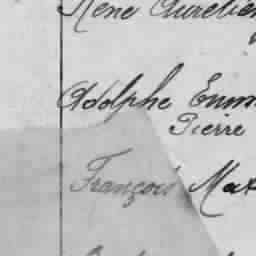 René Aurélien
Adolphe Emm
Pierre
François Max